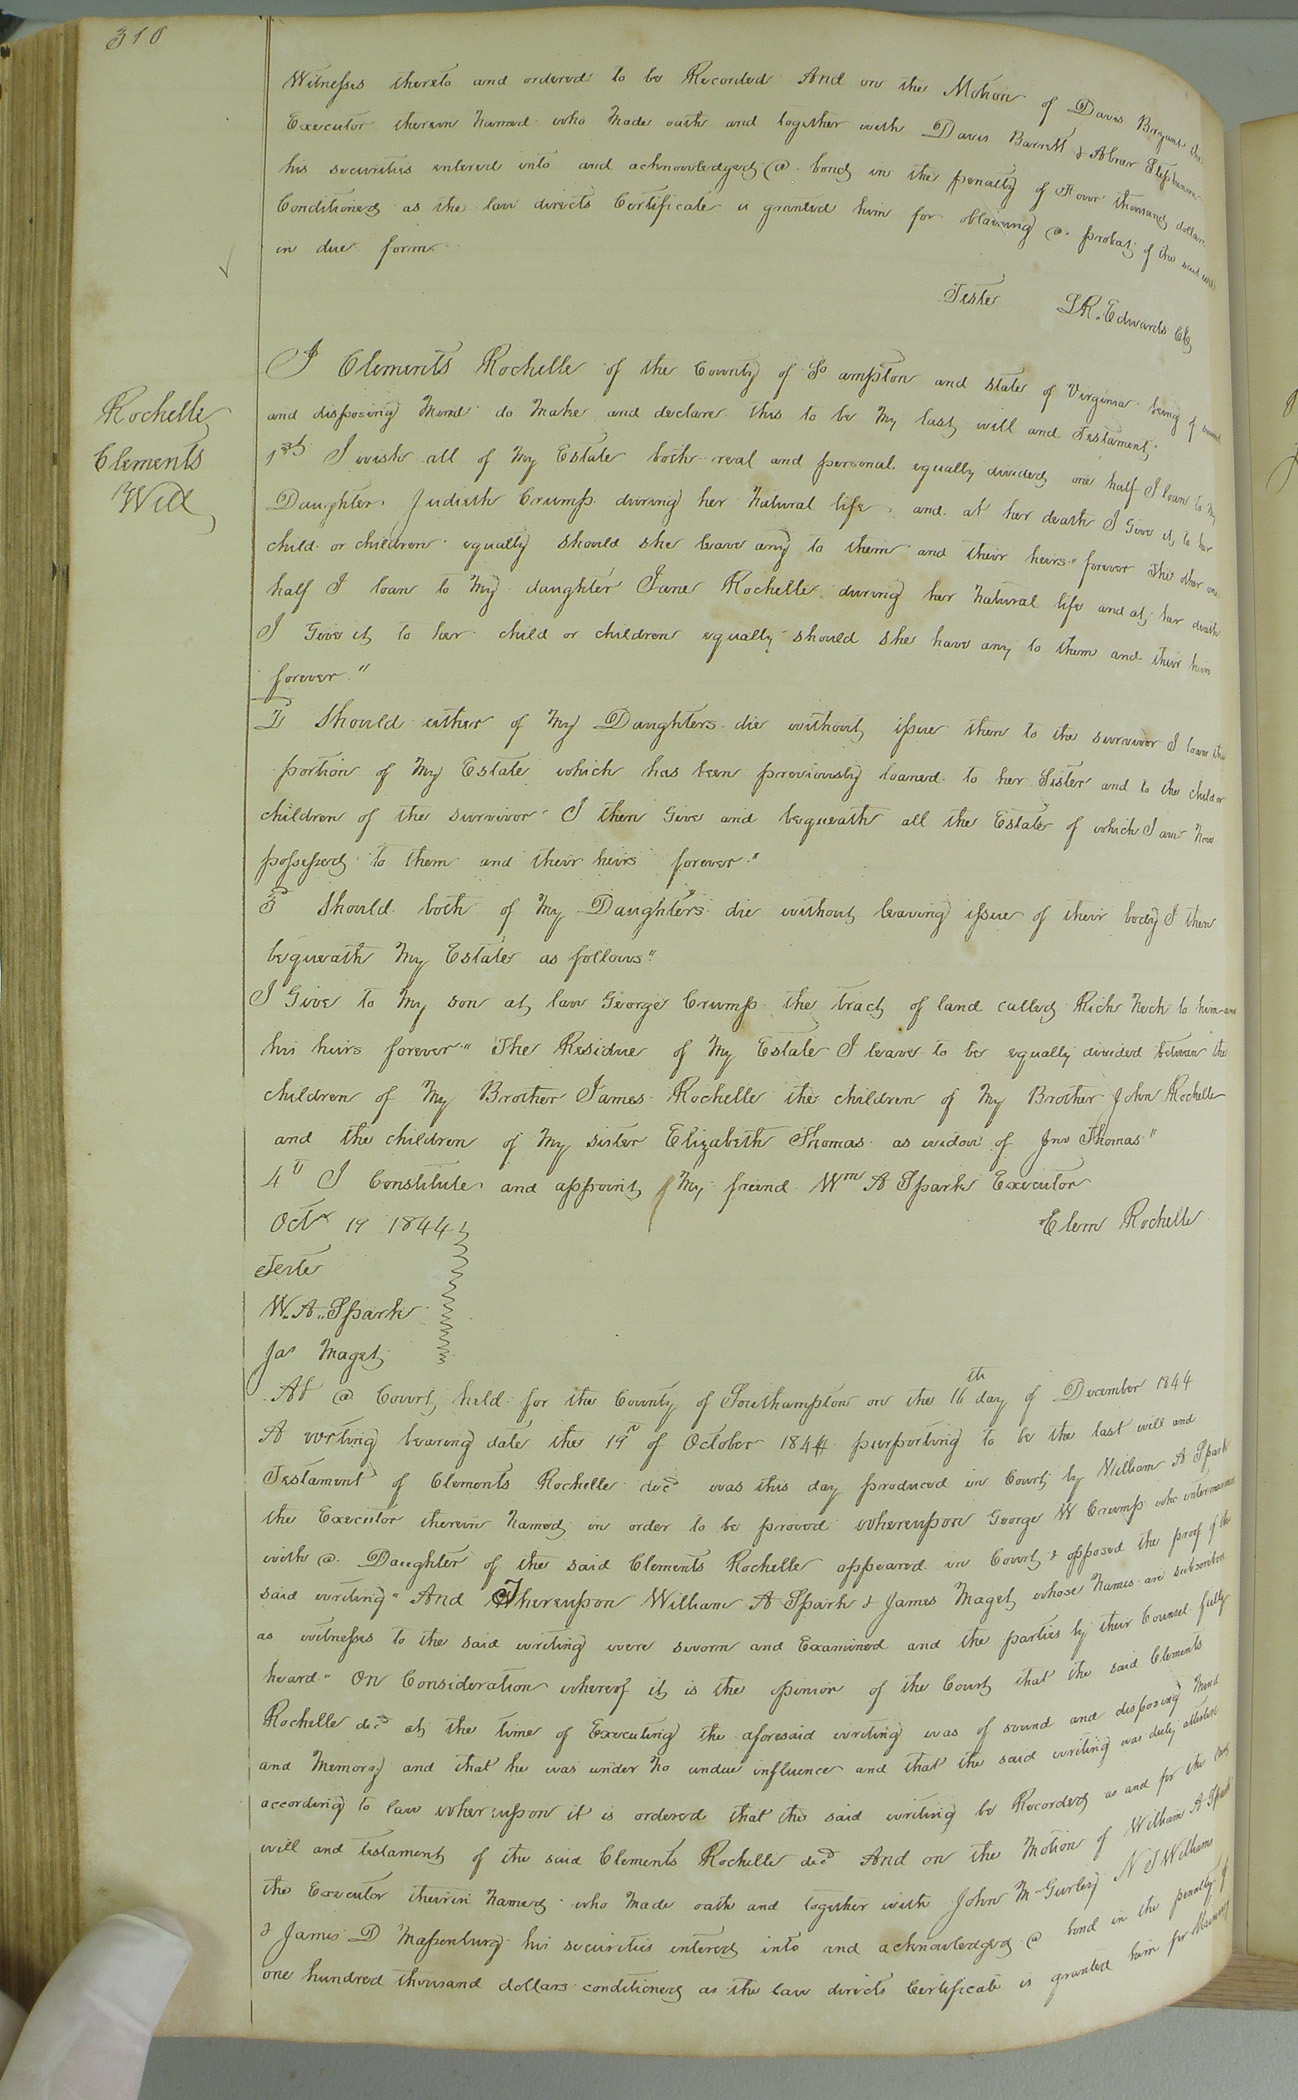 310
Witnesses thereto and ordered to be Recorded And on the Motion of Davis Bryant the
Executor therein Named who Made oath and together with Davis Barrett & Abner Stephenson
his securities entered into and acknowledged @ bond in the penalty of Four thousand dollars
Conditioned as the law directs Certificate is granted him for obtaining @ probat of the said will
in due form
Teste L R. Edwards Clk
Rochelle
Clements
Will
I Clements Rochelle of the County of So ampton and state of Virginia being of sound
and disposing Mind do Make and declare this to be My last will and Testament
1st I wish all of My Estate both real and personal equally divided one half I loan to My
Daughter Judith Crump during her Natural life and at her death I Give it to her
child or children equally should she leave any to them and their heirs" forever The other one
half I loan to My daughter Jane Rochelle during her Natural life and at her death
I Give it to her child or children equally should she have any to them and their heirs
forever"
2d Should either of My Daughters die without issue then to the survivor I loan the
portion of My Estate which has been previously loaned to her Sister and to the child or
children of the survivor I then Give and bequeath all the Estate of which I am Now
possessed to them and their heirs forever"
3d Should both of My Daughters die without leaving issue of their body I then
bequeath My Estate as follows"
I Give to My son at law George Crump the tract of land called Rich Neck to him and
his heirs forever" The Residue of My Estate I leave to be equally divided between the
children of My Brother James Rochelle the children of My Brother John Rochelle
and the children of My sister Elizabeth Thomas as widow of Jno Thomas"
4th I Constitute and appoint My friend Wm A Spark Executor
Octr 19 1844 Clem Rochelle
Teste
W. A.. Spark
Jas Maget
At @ Court held for the County of Southampton on the 16th day of December 1844
A writing bearing date the 19th of October 1844 purporting to be the last will and
Testament of Clements Rochelle decd was this day produced in Court by William A Spark
the Executor therein Named in order to be proved whereupon George W Crump who intermarried
with @ Daughter of the said Clements Rochelle appeared in Court & opposed the proof of the
said writing" And Thereupon William A Spark & James Maget whose Names are subscribed
as witnesses to the said writing were sworn and Examined and the parties by their Counsel fully
heard" On Consideration whereof it is the opinion of the Court that the said Clements
Rochelle decd at the time of Executing the aforesaid writing was of sound and disposing Mind
and Memory and that he was under No undue influence and that the said writing was duly attested
according to law whereupon it is ordered that the said writing be Recorded as and for the last
will and testament of the said Clements Rochelle decd And on the Motion of William A Spark
the Executor therein Named who Made oath and together with John M-Gurley N J Williams
& James D Massenburg his securities entered into and acknowledged @ bond in the penalty of
one hundred thousand dollars conditioned as the law directs Certificate is granted him for obtaining